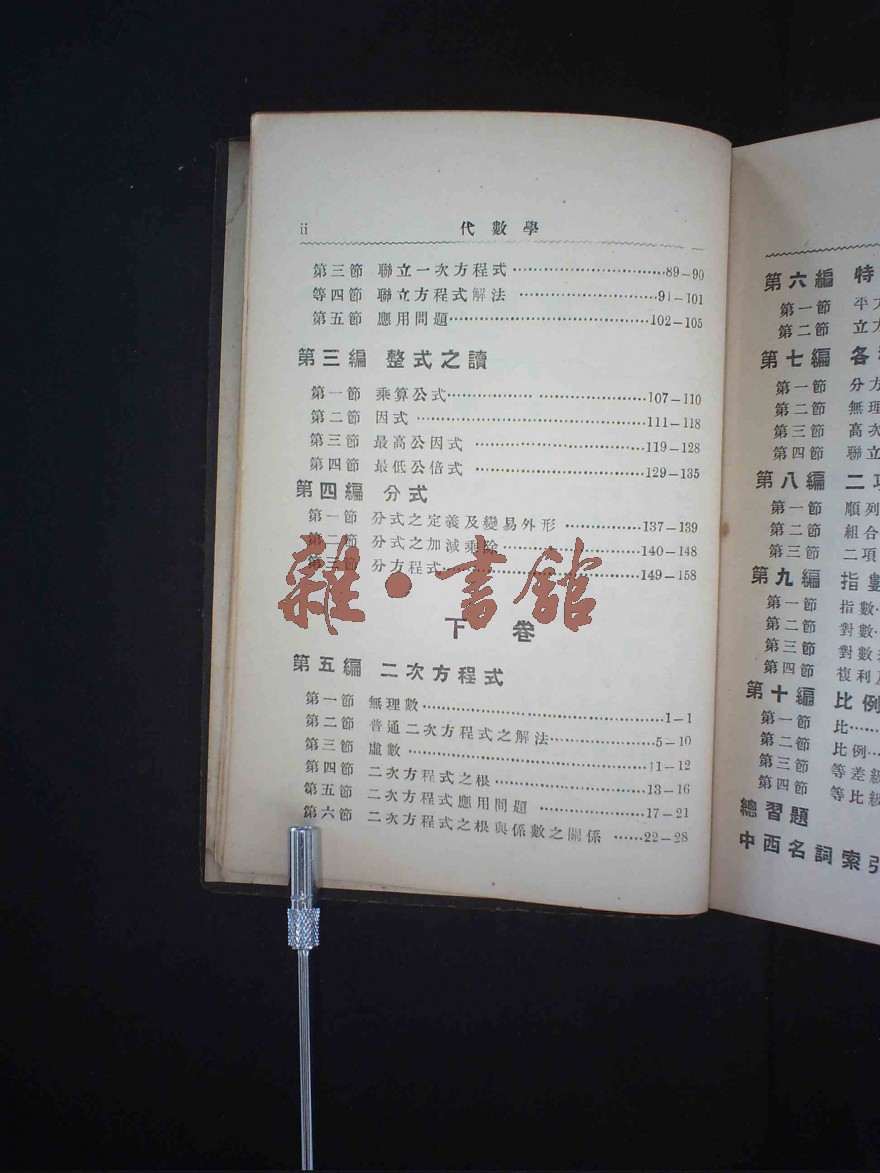 ii 代數學
第三節 聯立一次方程式……89-90
等四節 聯立方程式解法……91-101
第五節 應用問題……102-105
第三編 整式之讀
第一節 乘算公式……107-110
第二節 因式……111-118
第三節 最高公因式……119-128
第四節 最低公倍式……129-135
第四編 分式
第一節 分式之定義及變易外形……137-139
第二節 分式之加減乘除……140-148
第三節 分方程式……149-158
雜·書館
下卷
第五編 二次方程式
第一節 無理數……1-1
第二節 普通二次方程式之解法……5-10
第三節 虛數……11-12
第四節 二次方程式之根……13-16
第五節 二次方程式應用問題……17-21
第六節 二次方程式之根與係數之關係……22-28
第六編 特
第一節 平方
第二節 立方
第七編 各
第一節 分方
第二節 無理
第三節 高次
第四節 聯立
第八編 二項
第一節 順列
第二節 組合
第三節 二項
第九編 指數
第一節 指數
第二節 對數
第三節 對數
第四節 複利
第十編 比例
第一節 比……
第二節 比例…
第三節 等差級
第四節 等比級
總習題
中西名詞索引